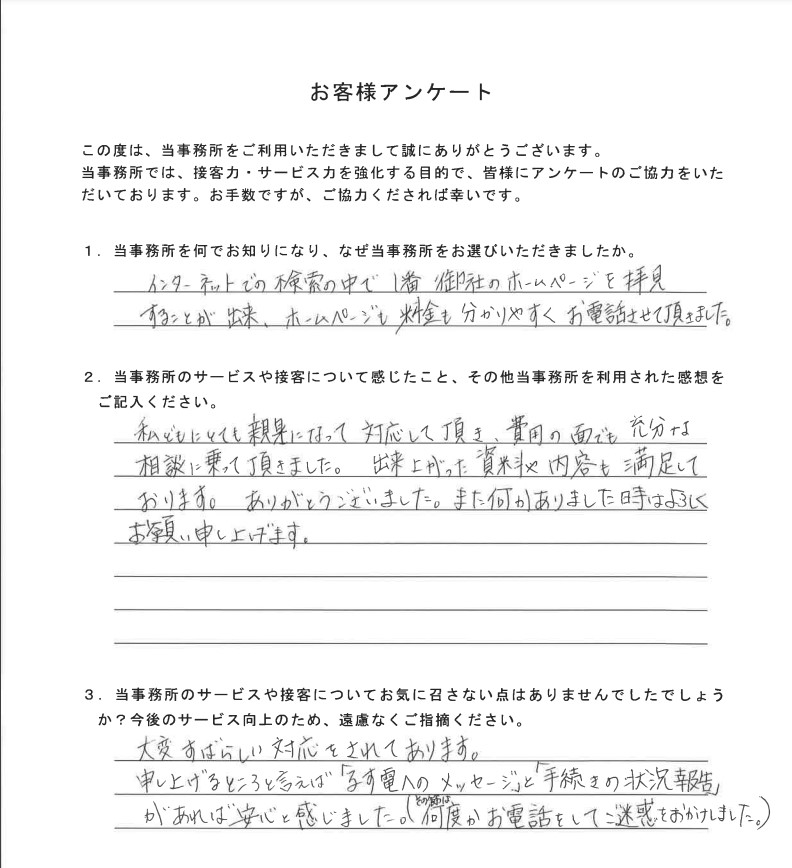 お客様アンケート
この度は、当事務所をご利用いただきまして誠にありがとうございます。
当事務所では、接客力・サービス力を強化する目的で、皆様にアンケートのご協力をいた
だいております。お手数ですが、ご協力くだされば幸いです。
１．当事務所を何でお知りになり、なぜ当事務所をお選びいただきましたか。
インターネットでの検索の中で１番御社のホームページを拝見
することが出来、ホームページも料金も分かりやすくお電話させて頂きました。
２．当事務所のサービスや接客について感じたこと、その他当事務所を利用された感想を
ご記入ください。
私どもにとても親身になって対応して頂き、費用の面でも充分な
相談に乗って頂きました。出来上がった資料や内容も満足して
おります。ありがとうございました。また何かありました時はよろしく
お願い申し上げます。
３．当事務所のサービスや接客についてお気に召さない点はありませんでしたでしょう
か？今後のサービス向上のため、遠慮なくご指摘ください。
大変すばらしい対応をされてあります。
申し上げるところと言えば「るす電へのメッセージ」と「手続きの状況報告」
があれば安心と感じました。（その節は何度かお電話をしてご迷惑をおかけしました。）